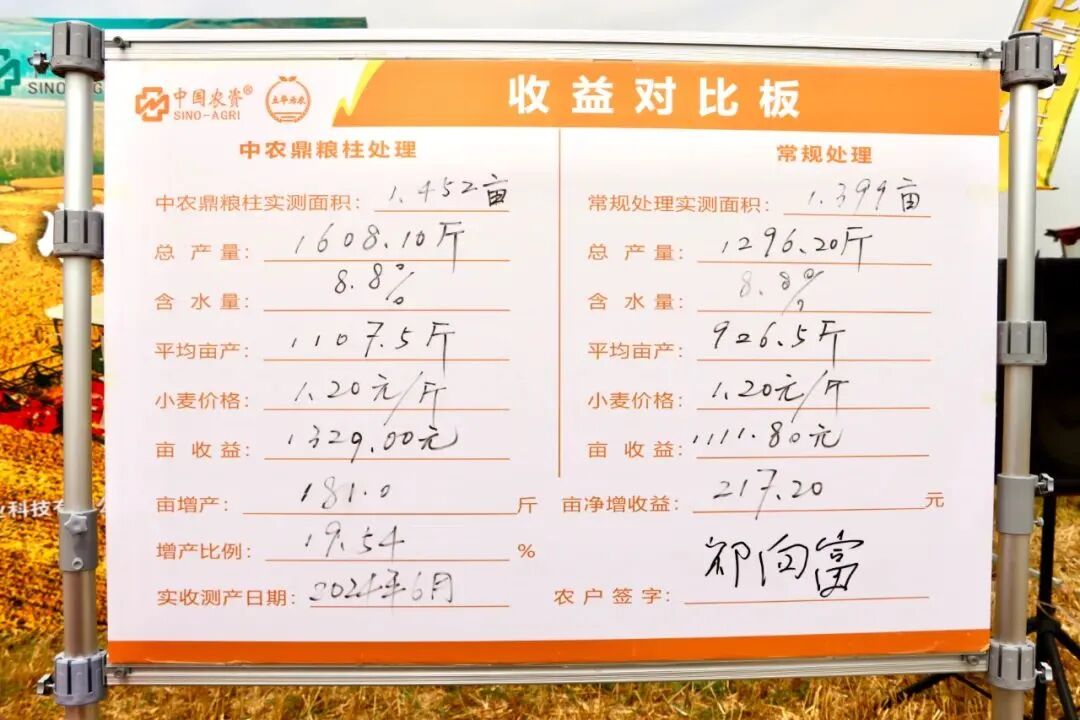 中国农资®
SINO-AGRI
立华为农
收益对比板
中农鼎粮柱处理
中农鼎粮柱实测面积：1.452亩
总产量：1608.10斤
含水量：8.8%
平均亩产：1107.5斤
小麦价格：1.20元/斤
亩收益：1329.00元
常规处理
常规处理实测面积：1.399亩
总产量：1296.20斤
含水量：8.8%
平均亩产：926.5斤
小麦价格：1.20元/斤
亩收益：1111.80元
亩增产：181.0斤
亩净增收益：217.20元
增产比例：19.54%
实收测产日期：2024年6月
农户签字：祁向富
SINO-AGRI
业科技有